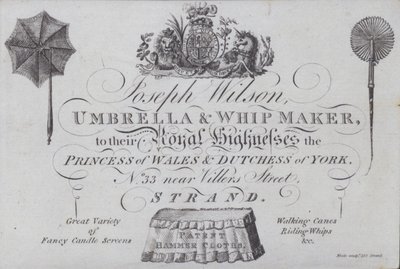 Joseph Wilson,
UMBRELLA & WHIP MAKER,
to their Royal Highnesses the
PRINCESS of WALES & DUTCHESS of YORK.
No. 33 near Villers Street,
STRAND.
Great Variety
of
Fancy Candle Screens
PATENT
HAMMER CLOTHS.
Walking Canes
Riding Whips
&c.
Strand